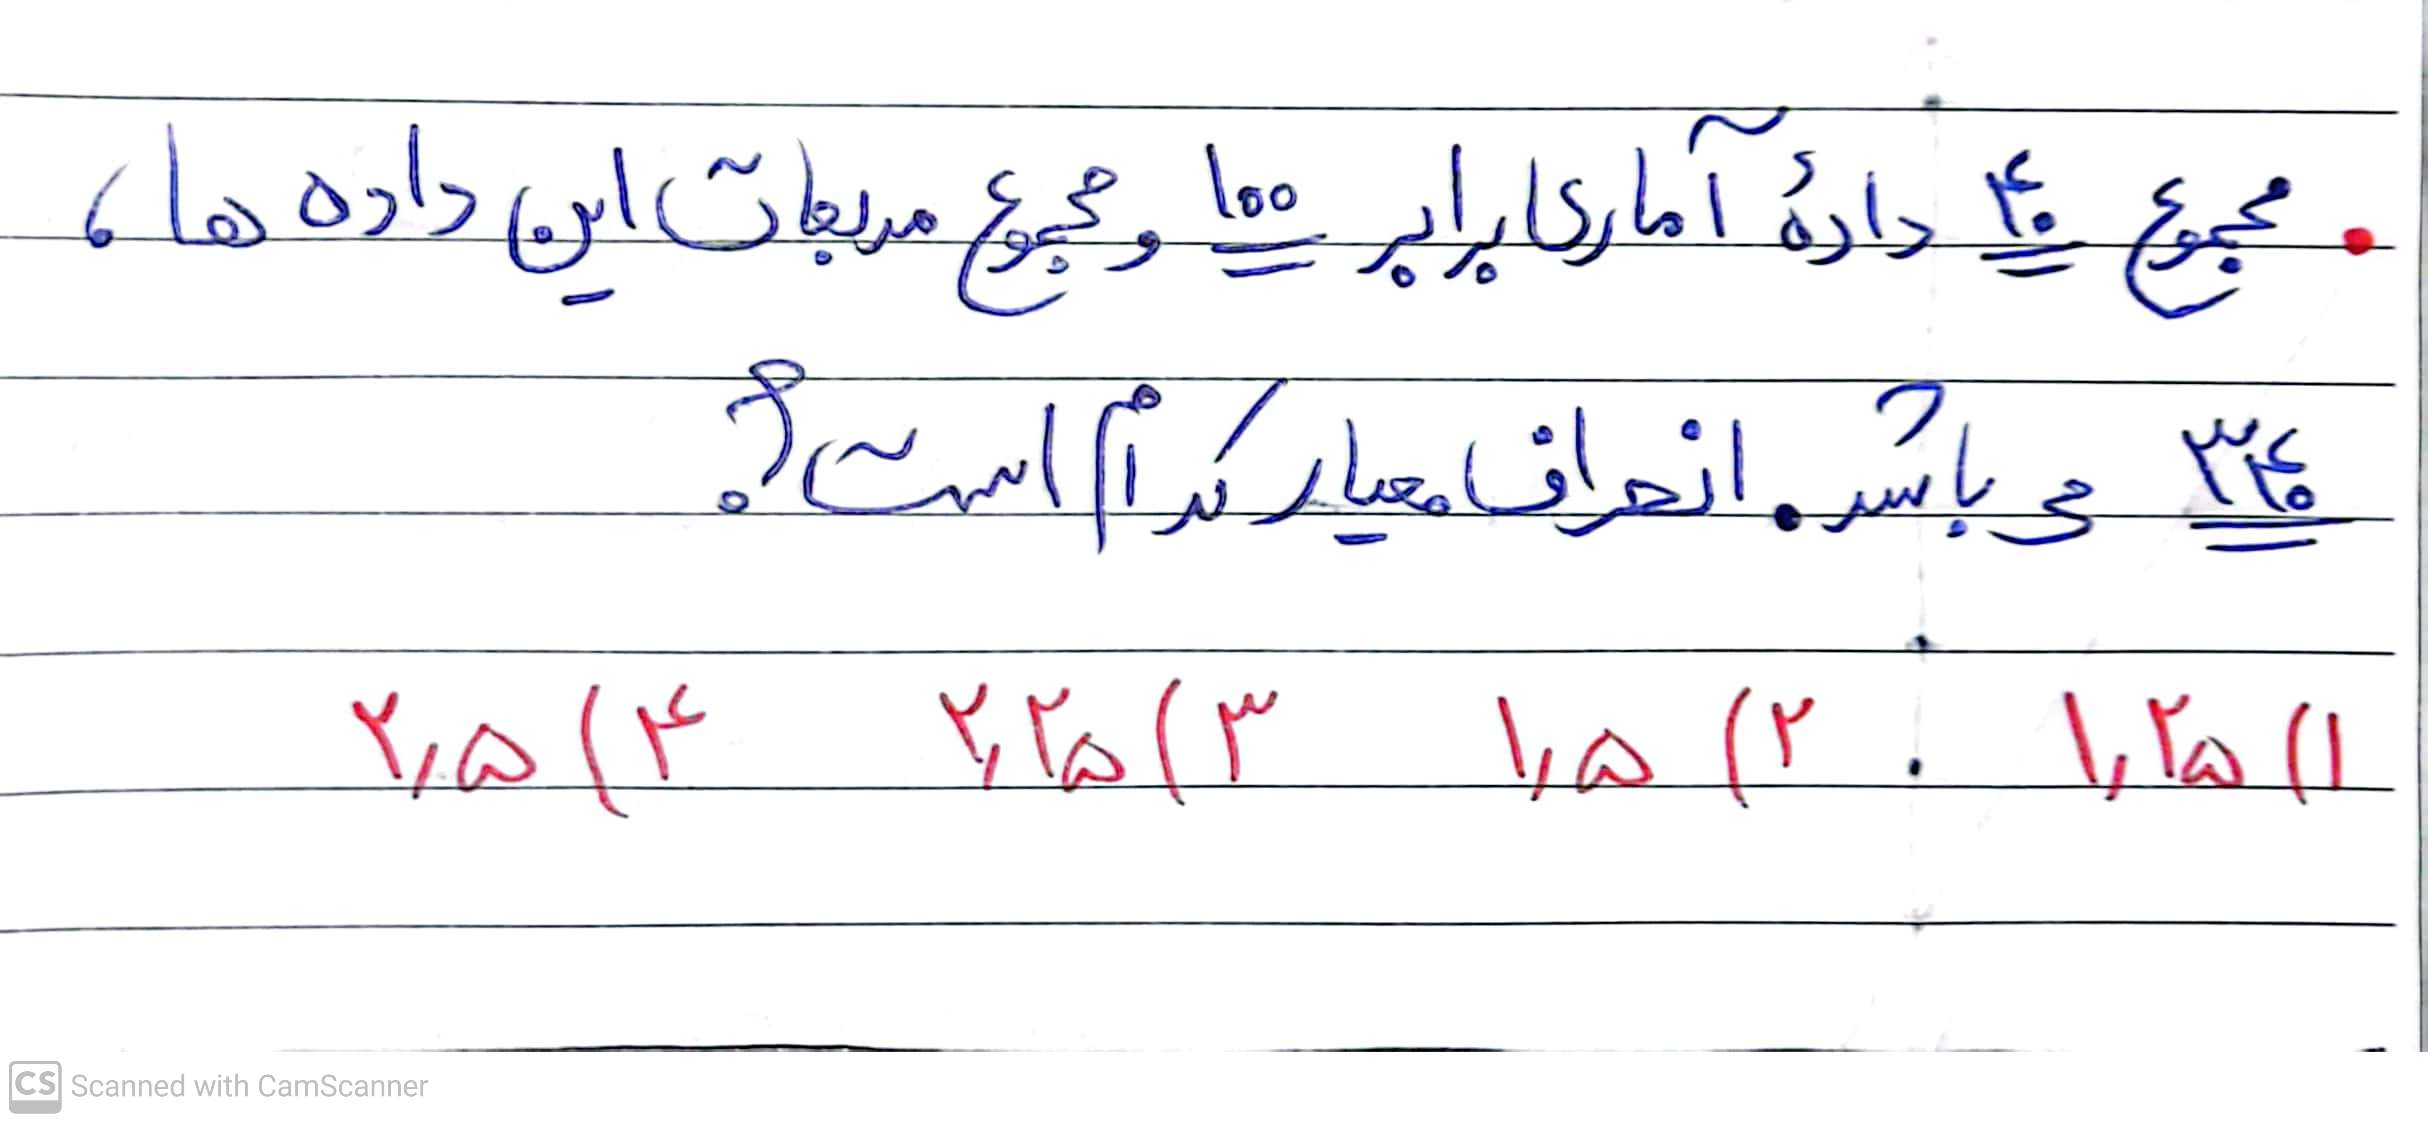 • مجموع ۴۰ دادهٔ آماری برابر ۱۰۰ و مجموع مربعات این داده ها،
۳۴۰ می باشد. انحراف معیار کدام است؟
۱) ۱,۲۵ ۲) ۱,۵ ۳) ۲,۲۵ ۴) ۲,۵
CS Scanned with CamScanner